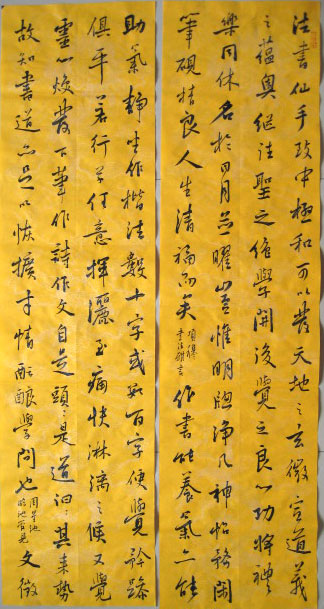 法書仙手致中極和可以發天地之玄微宣道義
之蘊奧繼往聖之絕學開後覺之良心功將禮
樂同休名於日月並曜豈惟明窗淨几神怡務閒
筆硯精良人生清福而矣 項穆
書法雅言 作書能養氣亦能
助氣靜坐作楷法數十字或數百字便覺矜躁
俱平若行草任意揮灑至痛快淋漓之候又覺
靈心煥發下筆作詩作文自有頭頭是道汩汩其來勢
故知書道亦足以恢擴才情醞釀學問也 周星蓮
臨池管見 文徵